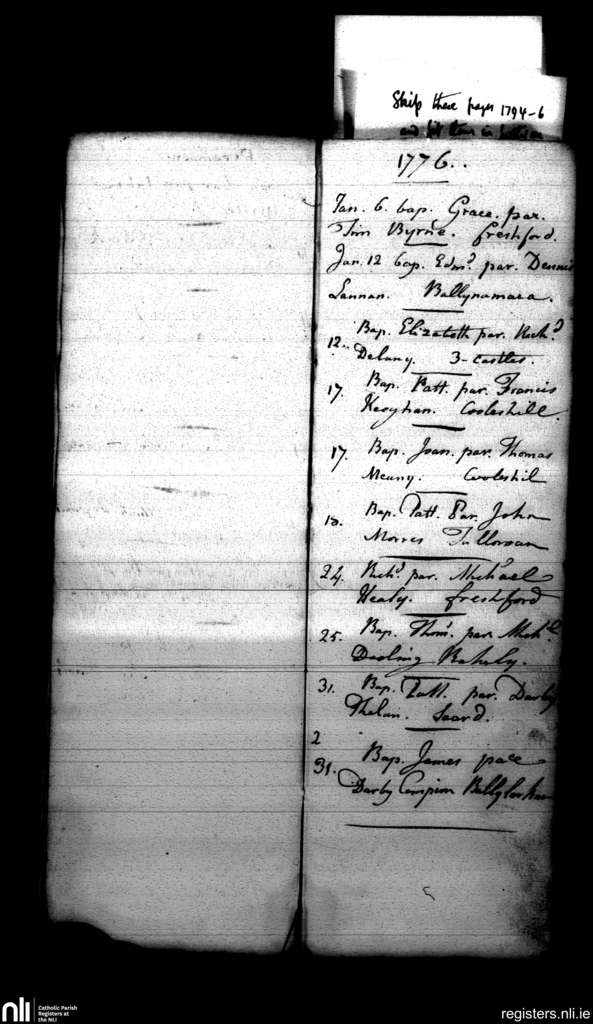 Skip these pages 1794-6
and
1776..
Jan. 6. bap. Grace. par.
Tim Byrne. freshford.
Jan. 12 bap. Edmd. par. Dennis
Lannan. Ballynamara.
12. Bap. Elizabeth par. Richd
Delany. 3-castles.
17. Bap. Patt. par. Francis
Keoghan. Cooleshill.
17. Bap. Joan. par. Thomas
Meany. Cooleshil
18. Bap. Patt. Par. John
Morres Tulloroan
24. Richd. par. Michael
Healy. freshford
25. Bap. Thom. par. Mich.l
Dooling
31. Bap. Patt. par. Darby
Phelan.
2
31. Bap. James par
Darby Compion
nli
Catholic Parish
Registers at
the NLI
registers.nli.ie